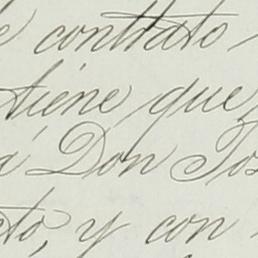 contrato
tiene que
á Don Jos
to, y con